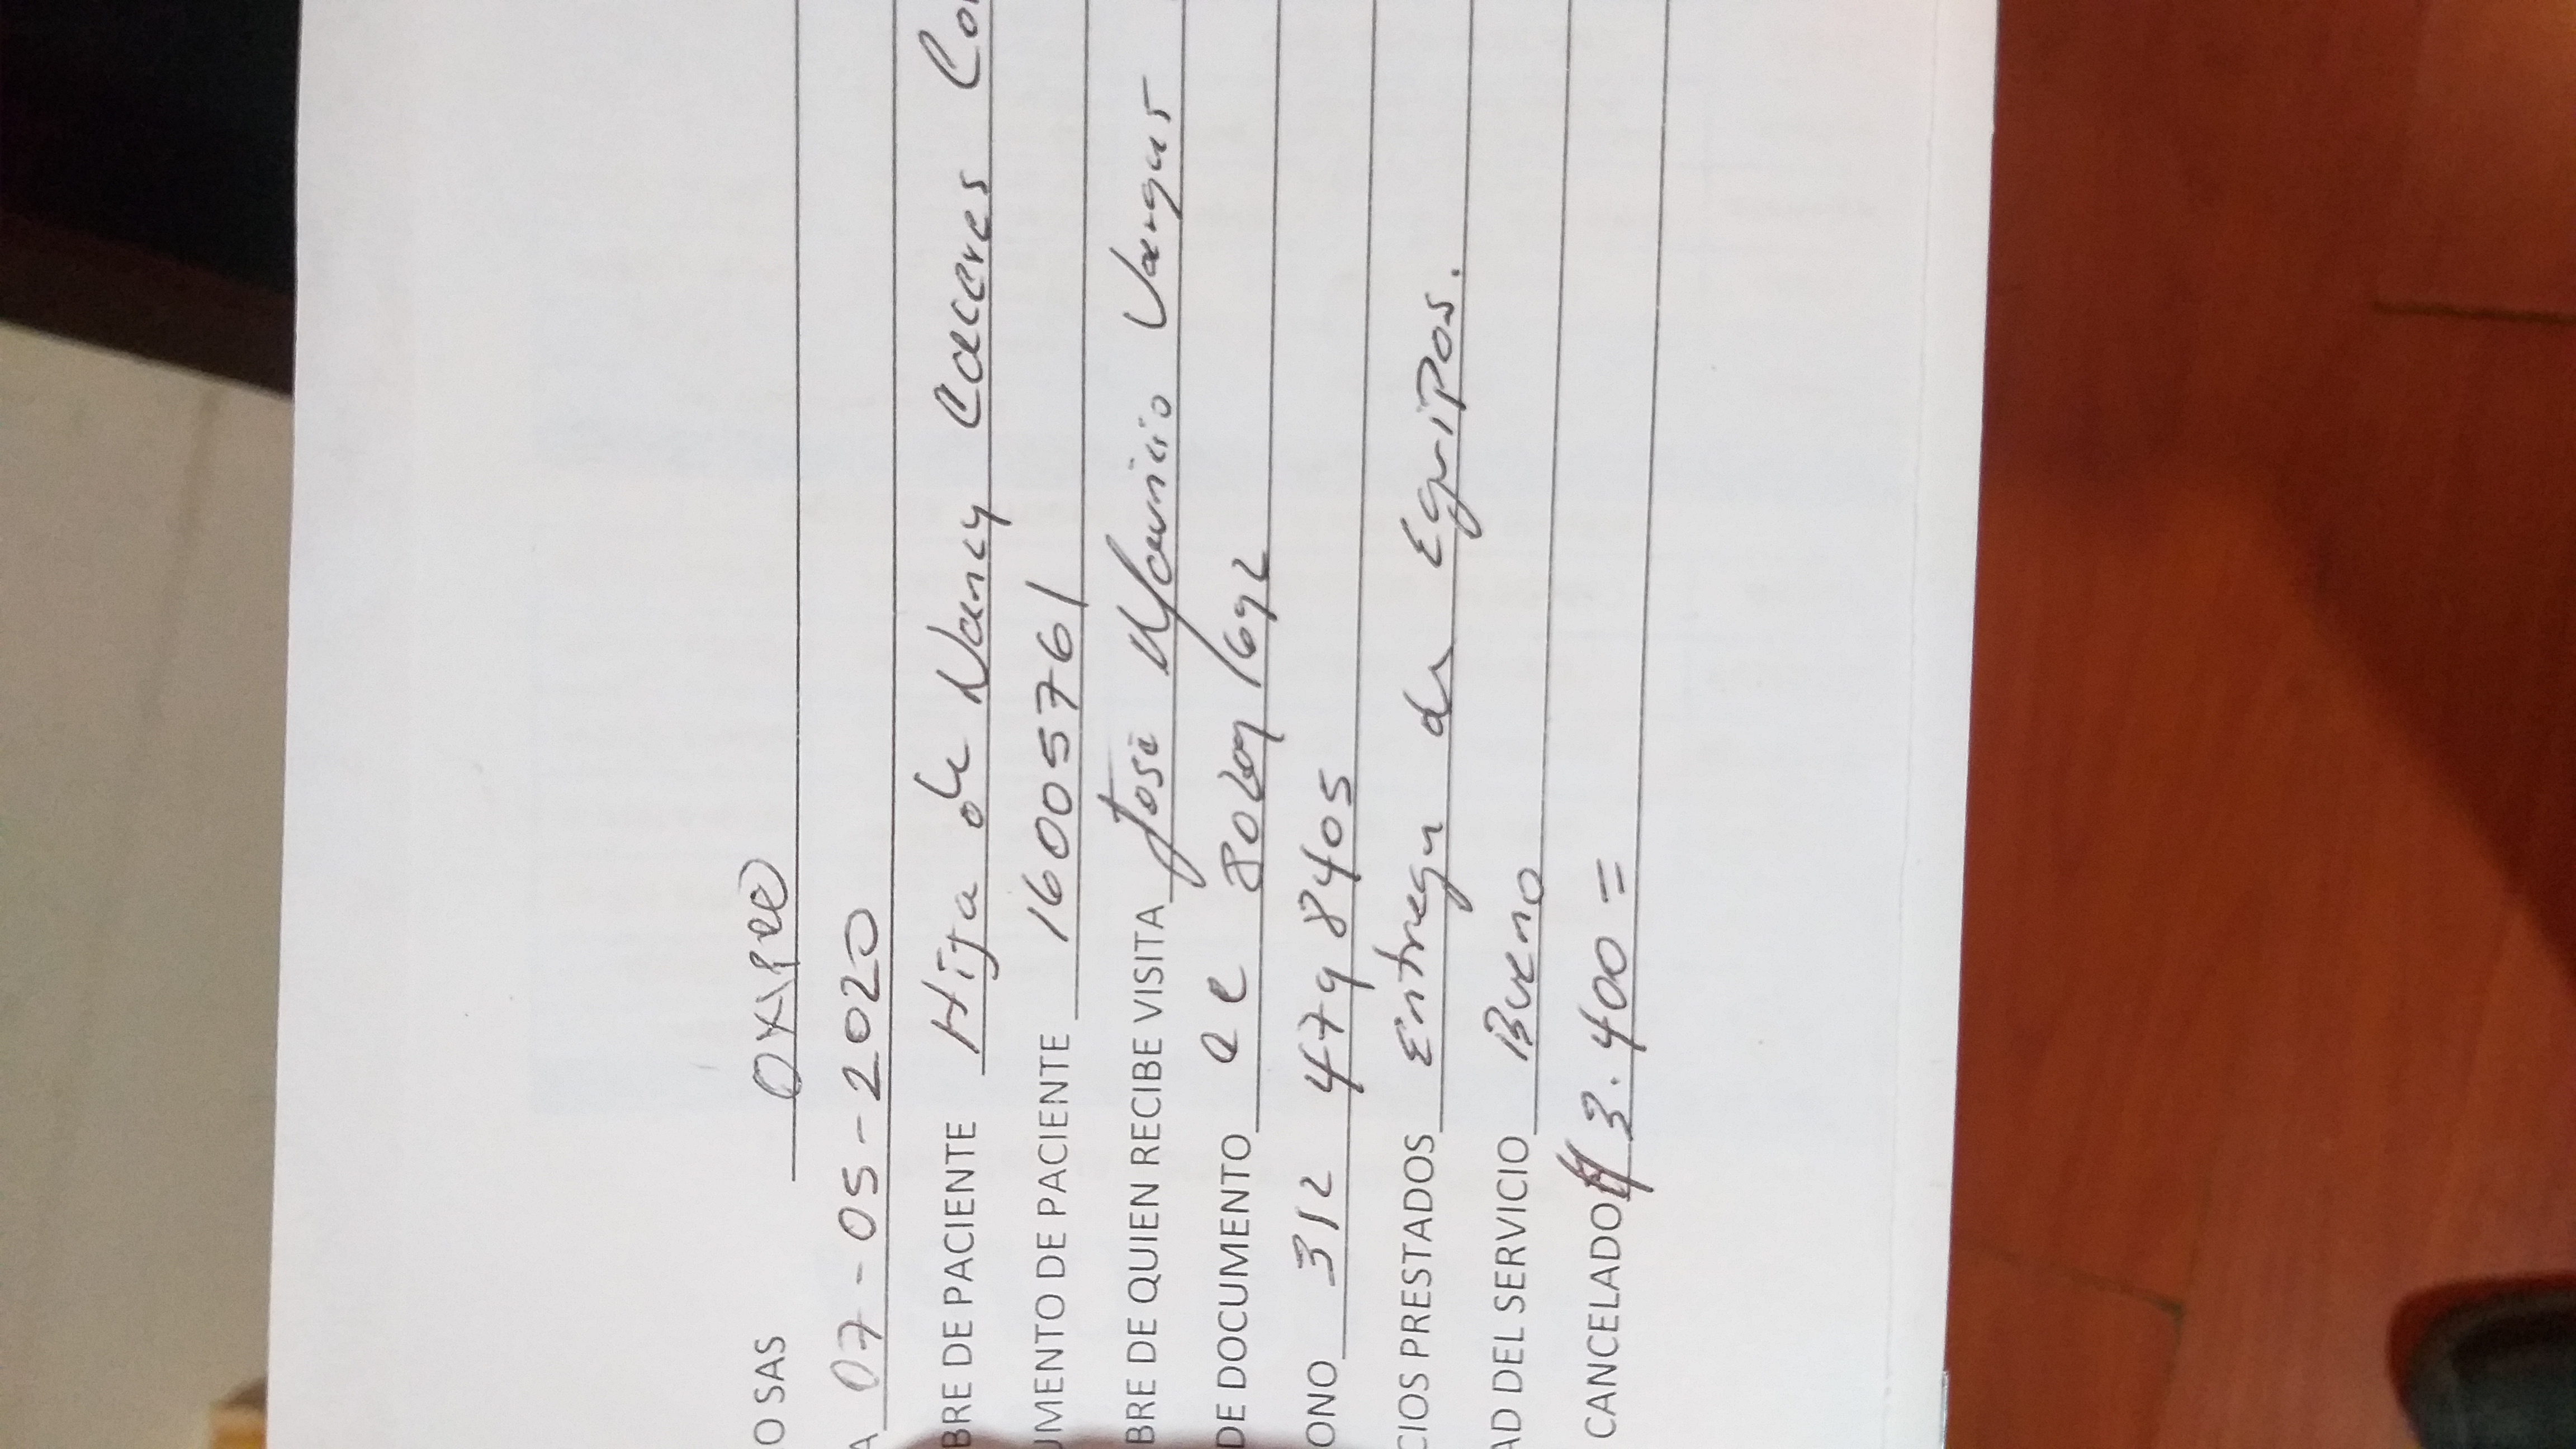 O SAS OXIPRO
A 07-05-2020
BRE DE PACIENTE Hija de Nancy Caceres Co
UMENTO DE PACIENTE 16005761
BRE DE QUIEN RECIBE VISITA Jose Mauricio Vargas
DE DOCUMENTO cc
ONO 312 4798405
CIOS PRESTADOS Entrega de Equipos.
AD DEL SERVICIO Bueno
CANCELADO $ 3.400=